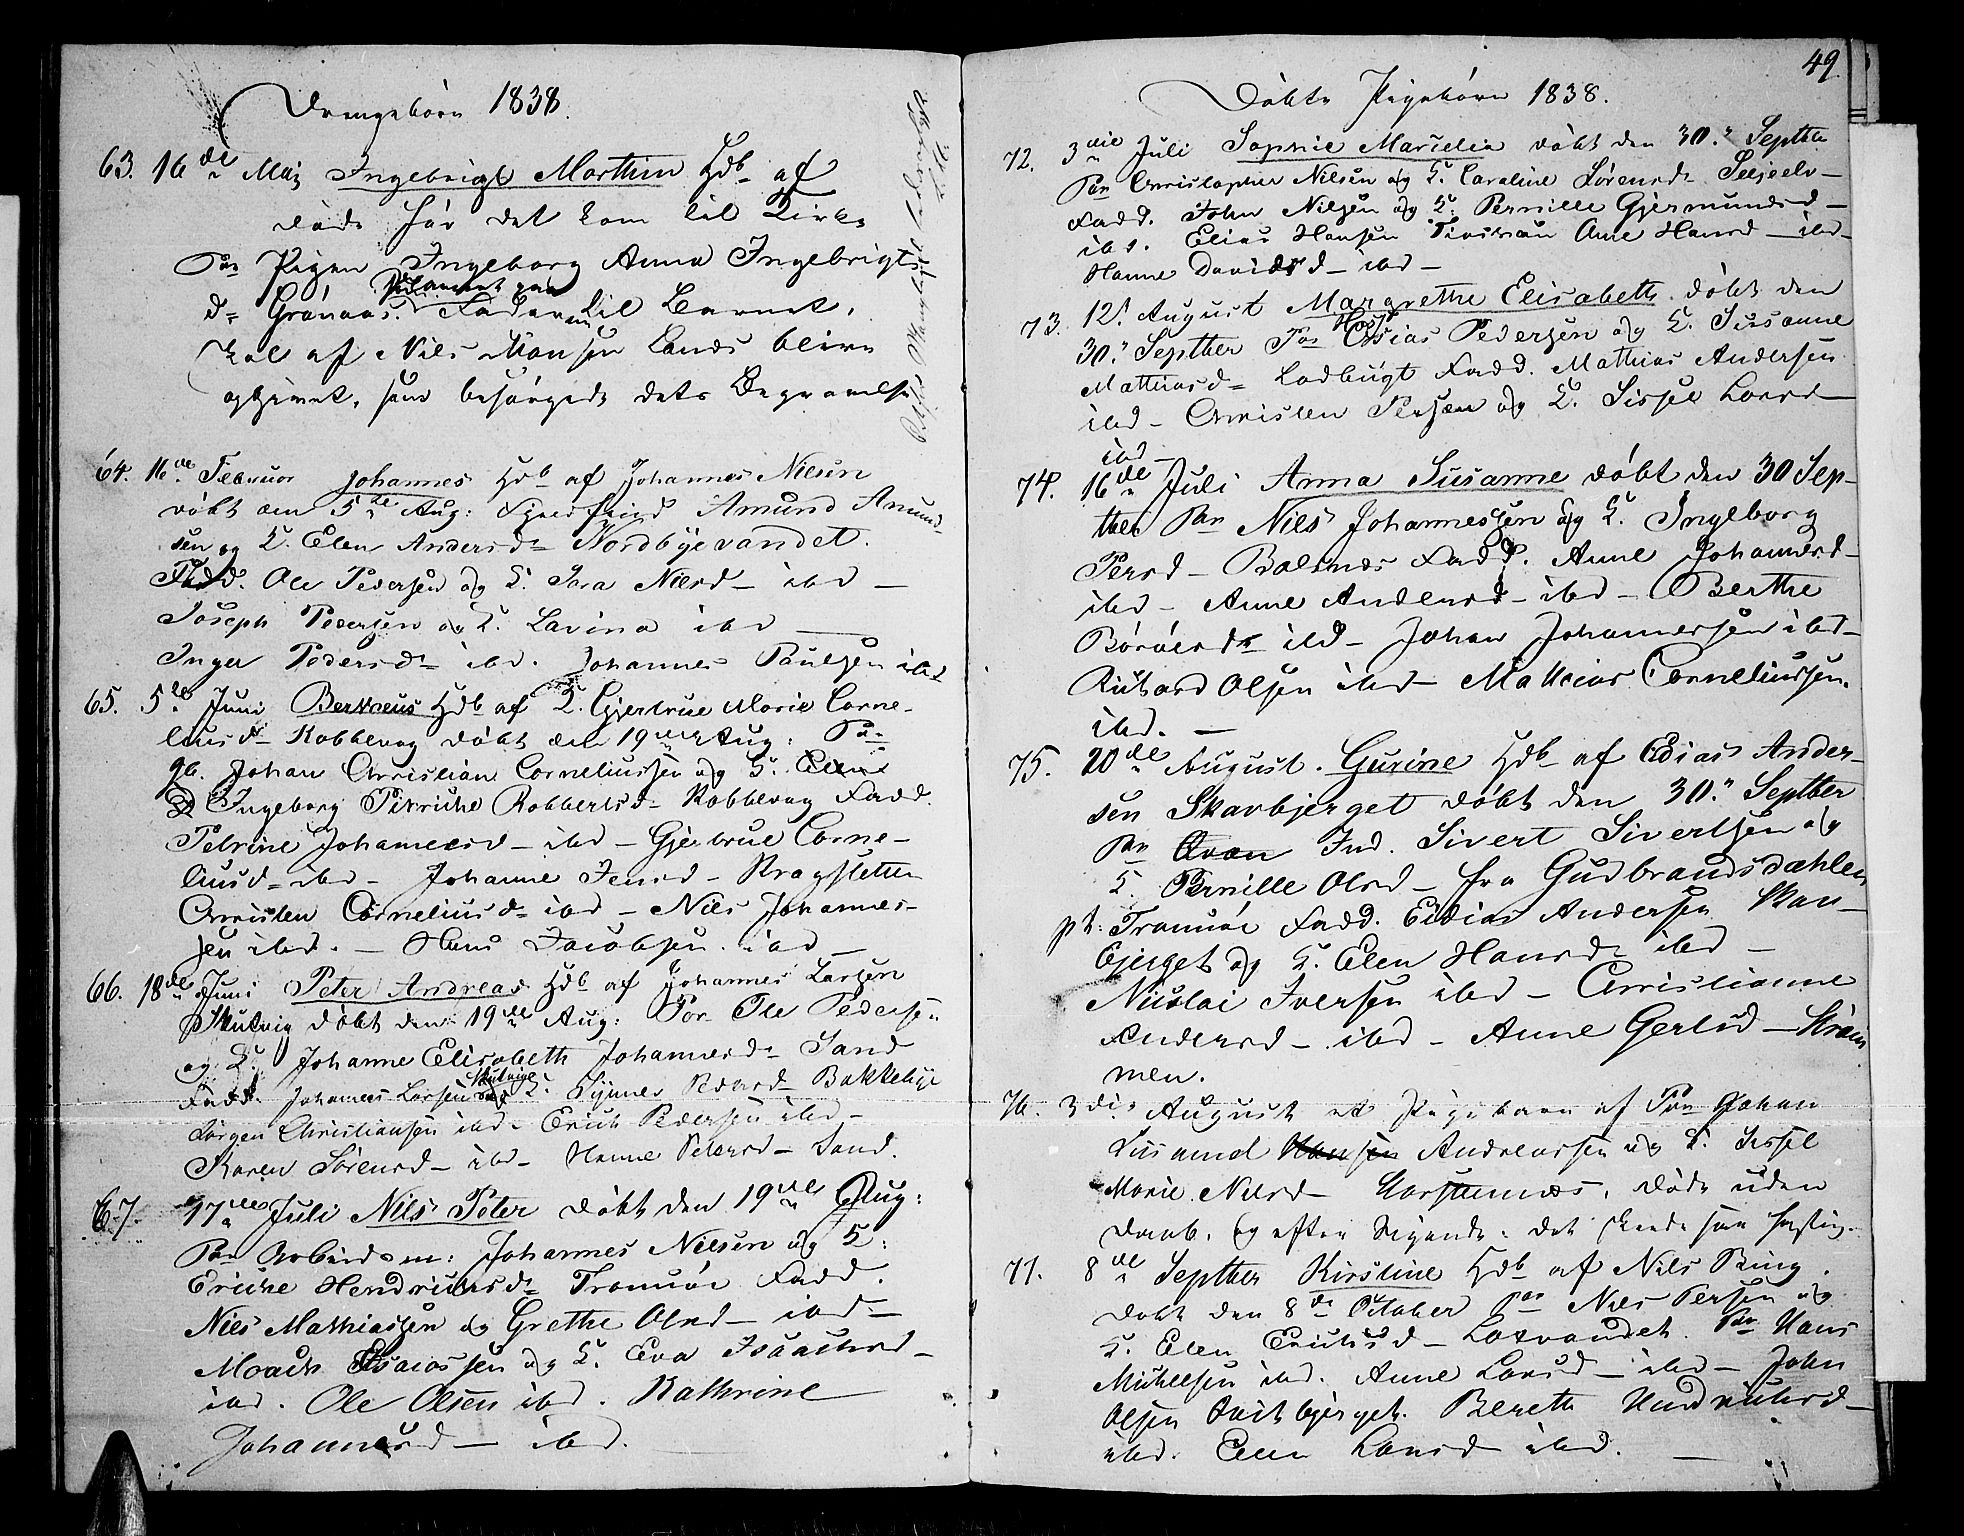 Drengebørn 1838.
63. 16de Maj Ingebrigt Marthin Hdb af
døde før det kom til Kirke
Før Pigen Ingeborg Anna Ingebrigts
d= Grønaas. Faderen til Barnet,
skal af Nils Monsen Lands blive
opgivet, som besørgede dets Begravelse
64. 16de Februar Johannes Hdb af Johannes Nilsen
døbt den 5te Aug: Amund Amund-
sen og K. Elen Andersd= Nordbyevandet.
Fadd. Ole Pedersen og K. Sara Nilsd- ibd -
Joseph Pedersen og K. Lavina ibd
Inger Pedersd- ibd. Johannes Paulsen ibd
65. 5te Juni Bertheus Hdb af K. Gjertrue Marie Corne-
liusd- Kobbevog døbt den 19de Aug: For
gb. Johan Christian Corneliussen og K. Elen
Ingeborg Petriche Robbertsd- Kobbevog Fadd.
Petrine Johannesd- ibd- Gjertrue Corne-
liusd- ibd- Johanne Jensd- Kragsletten
Christen Corneliusd- ibd - Nils Johannes-
sen ibd. - Hans Jacobsen ibd -
66. 18de Juni Peter Andreas Hdb af Johannes Larsen
Skutvig døbt den 19de Aug: For Ole Pedersen
og K. Johanne Elisabeth Johannesd- Sand
Fadd. Johannes Larsen Skutvig og K. Synnev Roarsd- Bakkebye
Jørgen Christiansen ibd- Erich Pedersen ibd-
Karen Sørensd- ibd- Hanne Petersd- Sand.
67. 17de Juli Nils Peter døbt den 19de Aug:
For Arbeidsm: Johannes Nilsen og K:
Eriche Hendrichsd- Tromsøe Fadd.
Nils Mathiassen og Grethe Olsd- ibd-
Esaiassen og K. Eva Isaachsd-
ibd. Ole Olsen ibd. Kathrine
Johannesd- ibd.
49
Døbte Pigebørn 1838.
72. 3die Juli Sophie døbt den 30. Septbr
For Christopher Nilsen og K. Caroline Sørensd- Seljeelv-
Fadd. John Nilsen og K. Pernille Gjermundsd-
ibd. Elias Hansen Ane Hansd- ibd-
Hanne Davidsd- ibd-
73. 12. August Margrethe Elisabeth døbt den
30. Septber For Esias Pedersen og K. Susanne
Mathiasd- Ladbugt Fadd. Mathias Andersen
ibd- Christen Persen og K. Sissel Larsd-
ibd-
74. 16de Juli Anna Susanne døbt den 30 Sep-
tber For Nils Johannessen og K. Ingeborg
Persd- Balsnæs Fadd. Anne Johannesd-
ibd- Anne Andersd- ibd- Berthe
ibd- Johan Johannessen ibd-
Richard Olsen ibd- Mathias Corneliussen.
ibd. -
75. 20de August. Gurine Hdb af Edias Ander-
sen Skarbjerget døbt den 30. Septber
For Ind. Sivert Sivertsen og
K. Pernille Olsd- fra Gudbrandsdahlen
pt. Tromsøe Fadd. Edias Andersen Skar-
bjerget og K. Elen Hansd- ibd-
Nicolai Iversen ibd - Christianne
Andersd- ibd - Anne Gertsd- Strøm
men.
76. 3die August et Pigebarn af For Johan
Andreassen og K. Sissel
Marie Nilsd- døde uden
Daab, og efter Sigende, det skede saa hastig.
77. 8de Septber Kirstine Hdb af Nils Ring.
Døbt den 8de October For Nils Persen og
K. Elen Erichsd- Laxvandet. For Hans
Michelsen ibd. Anne Larsd- ibd- John
Olsen Berethe Hendrichsd-
ibd. Elen Larsd ibd.